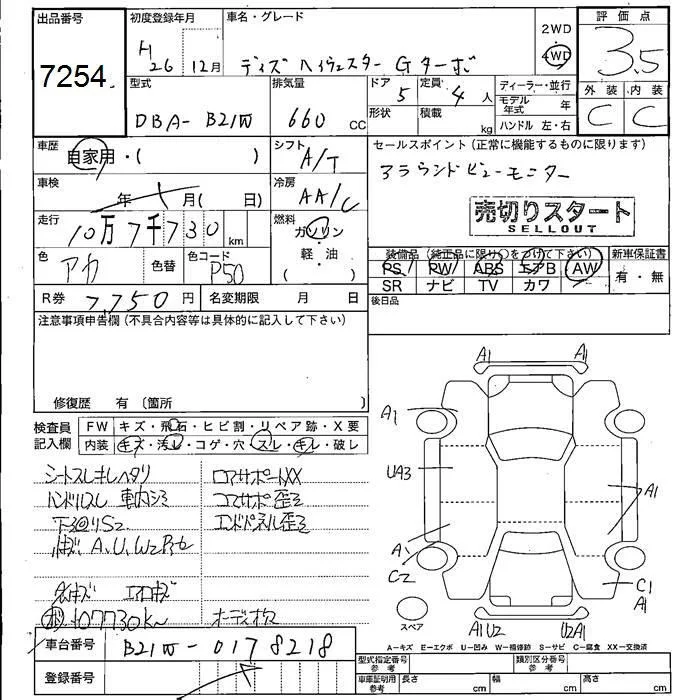 出品番号 初度登録年月 車名・グレード 2WD 評価点
7254 H26 12月 デイズ ハイウェスター Gターボ 4WD 3.5
型式 排気量 ドア 定員 ディーラー・並行 外装 内装
DBA- B21W 660 cc 5 4 人 モデル年式 年 C C
形状 積載 kg ハンドル 左・右
車歴 自家用・( ) シフト A/T セールスポイント(正常に機能するものに限ります)
アラウンドビューモニター
車検 年 月( 日) 冷房 AA/C
売切りスタート
SELLOUT
走行 10万7千730 km 燃料 ガソリン・軽油( )
色 アカ 色替 色コード P50
装備品(純正品に限り○をつけて下さい) 新車保証書
PS PW ABS エアB AW 有・無
SR ナビ TV カワ
R券 7,750円 名変期限 月 日 後日品
注意事項申告欄(不具合内容等は具体的に記入して下さい)
修復歴 有 〔箇所 〕
検査員記入欄 FW キズ・飛石・ヒビ割・リペア跡・X要
内装 キズ・汚レ・コゲ・穴・スレ・キレ・破レ
シートスレキレヘタリ ロアサポートXX
ハンドルスレ 車内シミ コアサポ歪ミ
下回りS2 エンドパネル歪ミ
A、U、W2
エアロキズ
107730K オーディオ
A1 A1
A1
UA3
A1
A
C2
C1
A1
スペア
A1 U2 U2A1
車台番号 B21W - 0178218
登録番号
A−キズ E−エクボ U−凹み W−補修跡 S−サビ C−腐食 XX−交換済
型式指定番号 参考 類別区分番号 参考
車庫証明用 参考 長さ cm 幅 cm 高さ cm